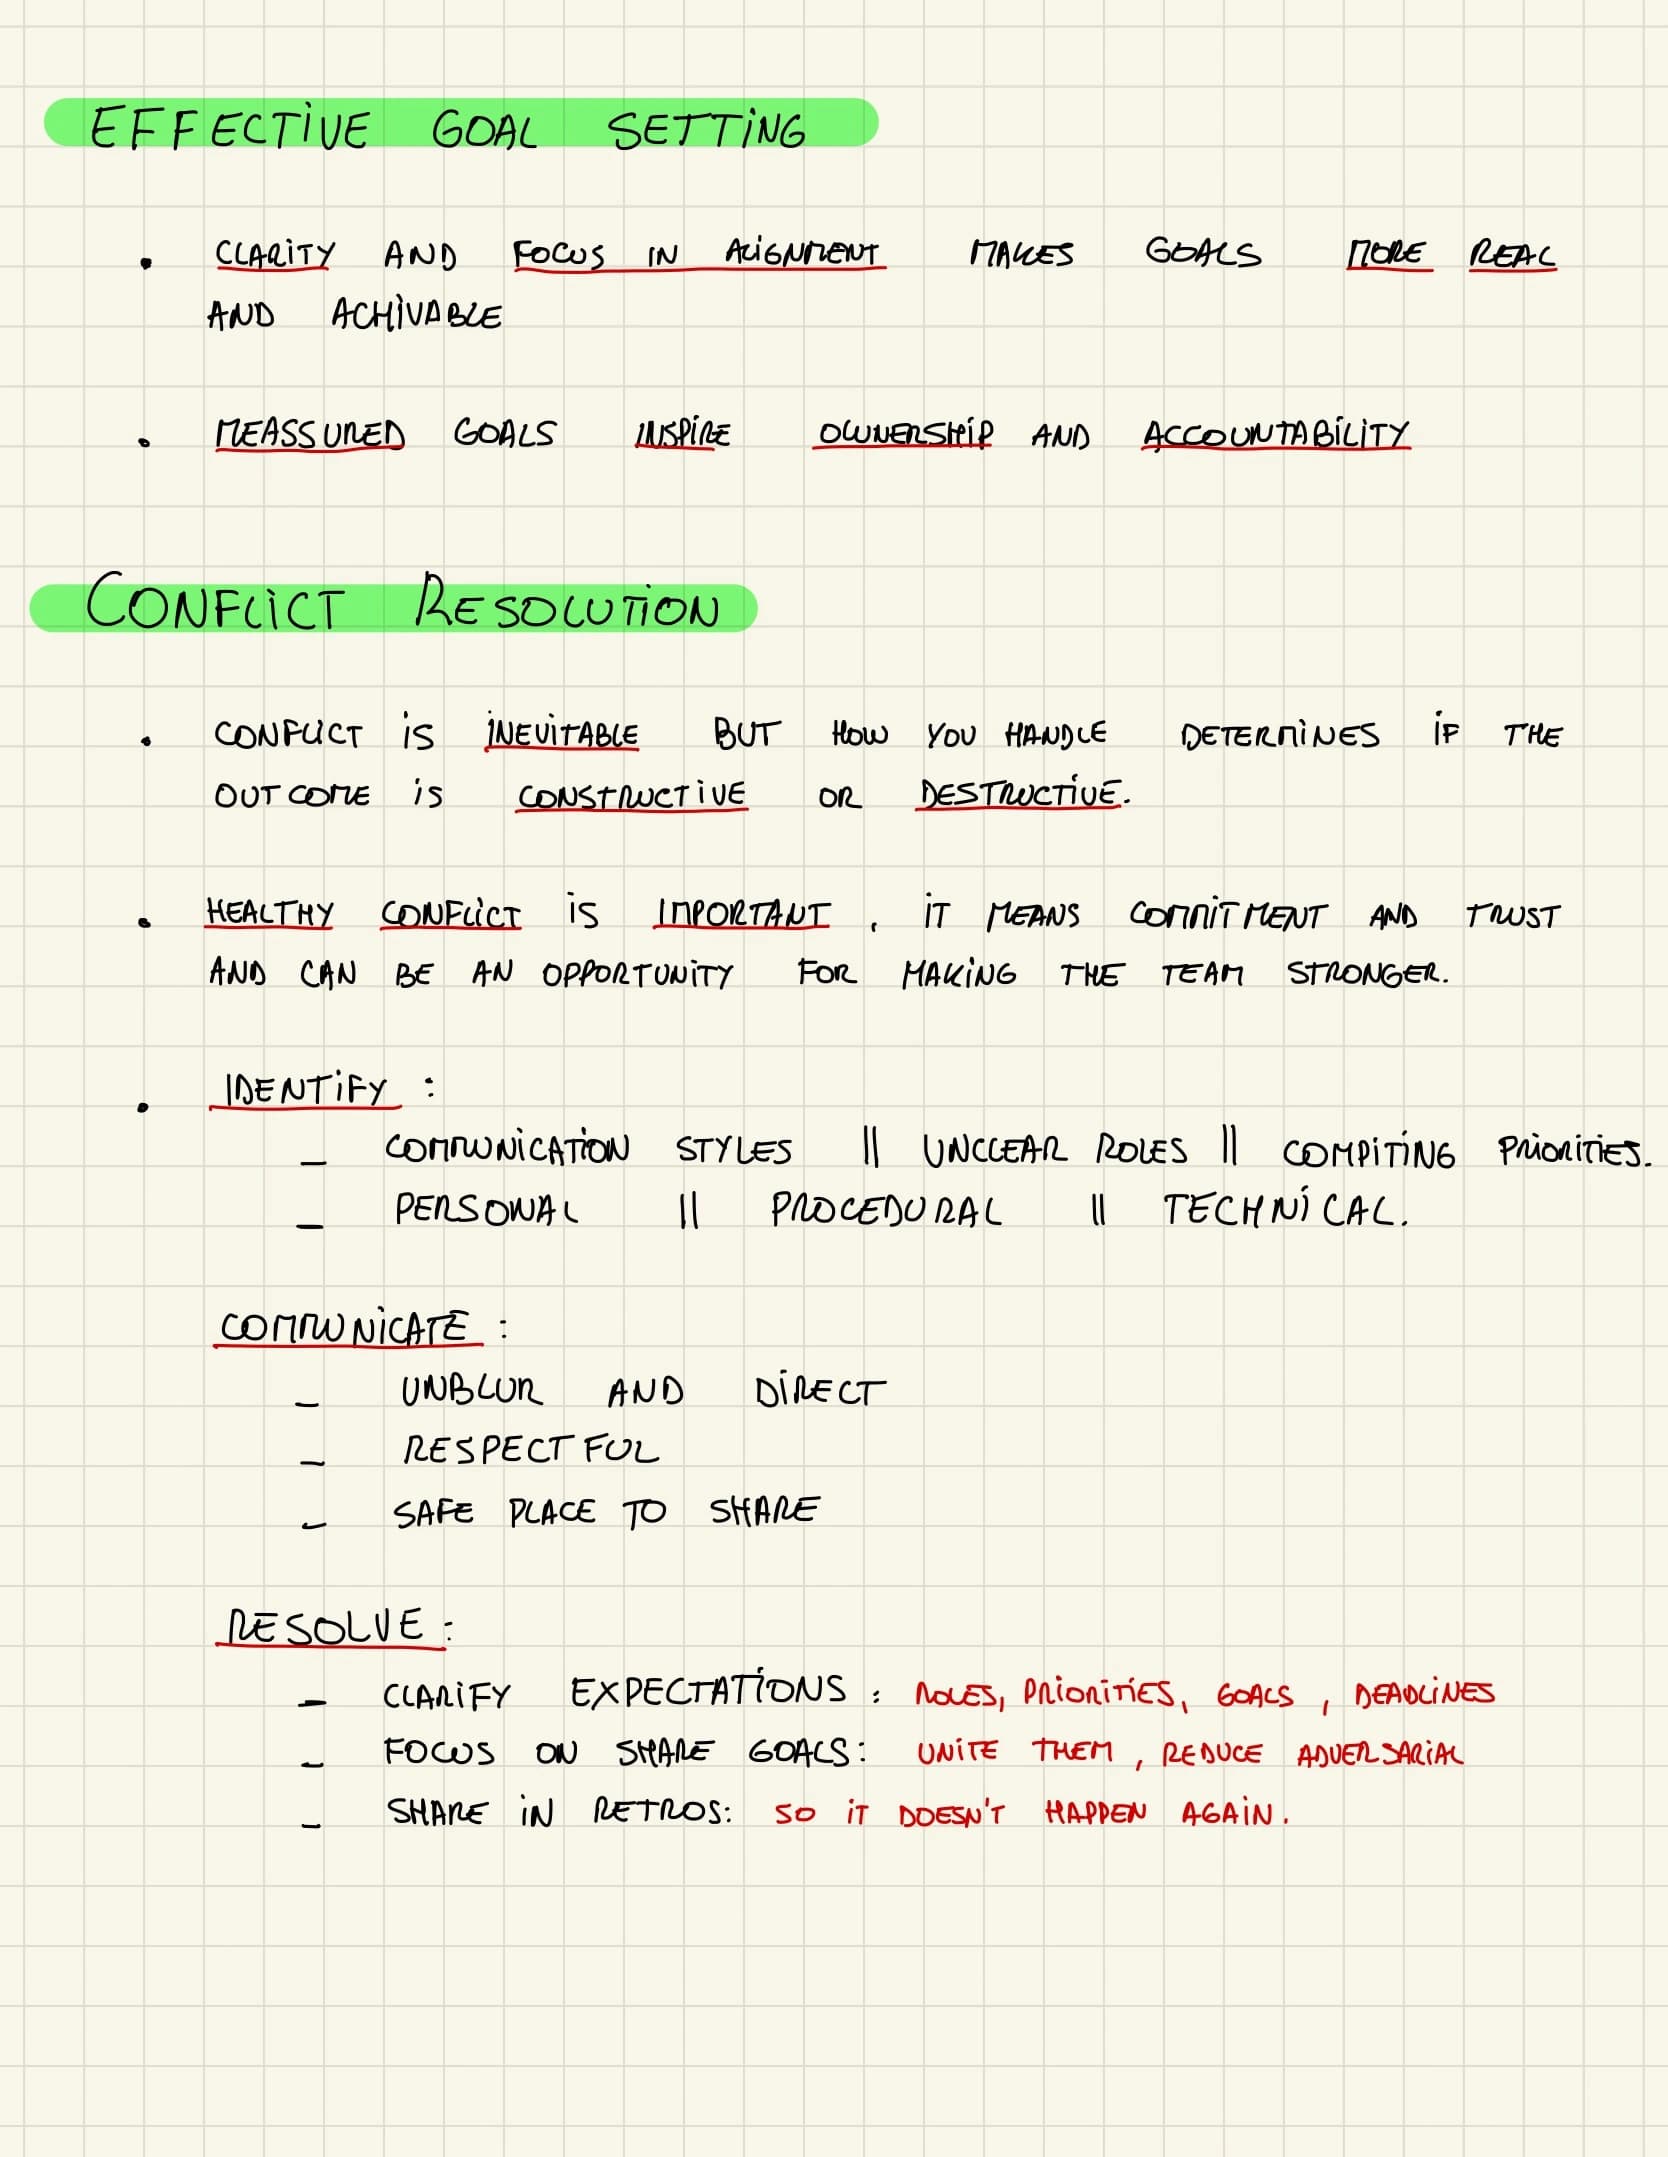 EFFECTIVE GOAL SETTING
• CLARITY AND FOCUS IN ALIGNMENT MAKES GOALS MORE REAL
AND ACHIVABLE
• MEASSURED GOALS INSPIRE OWNERSHIP AND ACCOUNTABILITY
CONFLICT RESOLUTION
• CONFLICT IS INEVITABLE BUT HOW YOU HANDLE DETERMINES IF THE
OUTCOME IS CONSTRUCTIVE OR DESTRUCTIVE.
• HEALTHY CONFLICT IS IMPORTANT, IT MEANS COMMITMENT AND TRUST
AND CAN BE AN OPPORTUNITY FOR MAKING THE TEAM STRONGER.
• IDENTIFY:
- COMMUNICATION STYLES || UNCLEAR ROLES || COMPITING PRIORITIES.
- PERSONAL || PROCEDURAL || TECHNICAL.
COMMUNICATE:
- UNBLUR AND DIRECT
- RESPECTFUL
- SAFE PLACE TO SHARE
RESOLVE:
- CLARIFY EXPECTATIONS: ROLES, PRIORITIES, GOALS, DEADLINES
- FOCUS ON SHARE GOALS: UNITE THEM, REDUCE ADVERSARIAL
- SHARE IN RETROS: SO IT DOESN'T HAPPEN AGAIN.